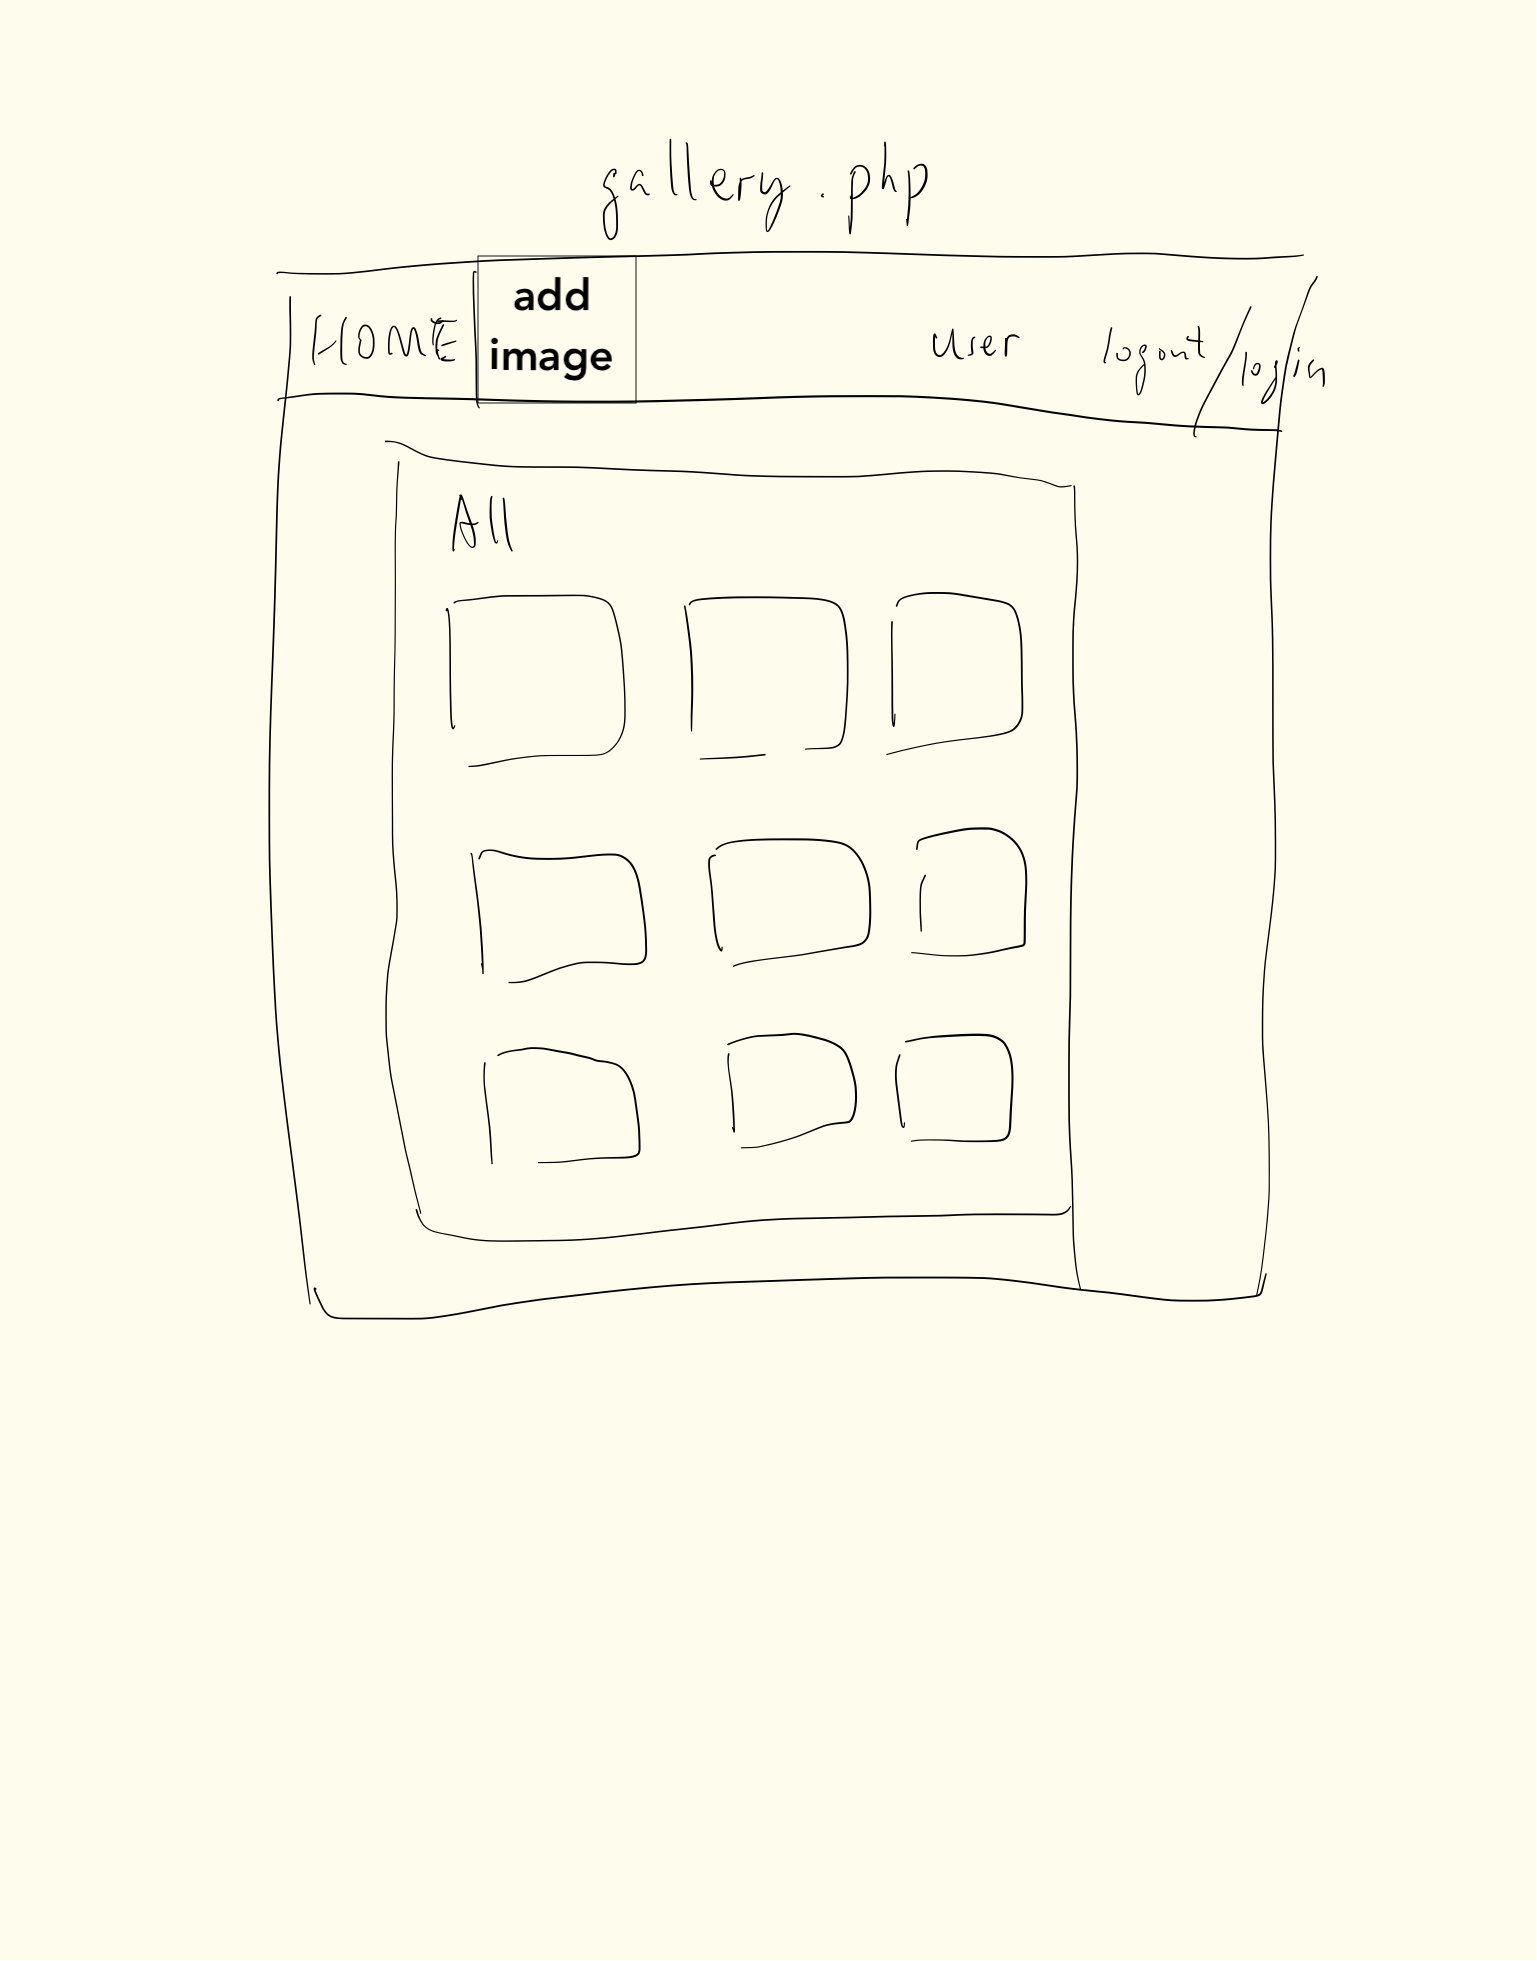 gallery.php
HOME
add
image
user
logout/login
All